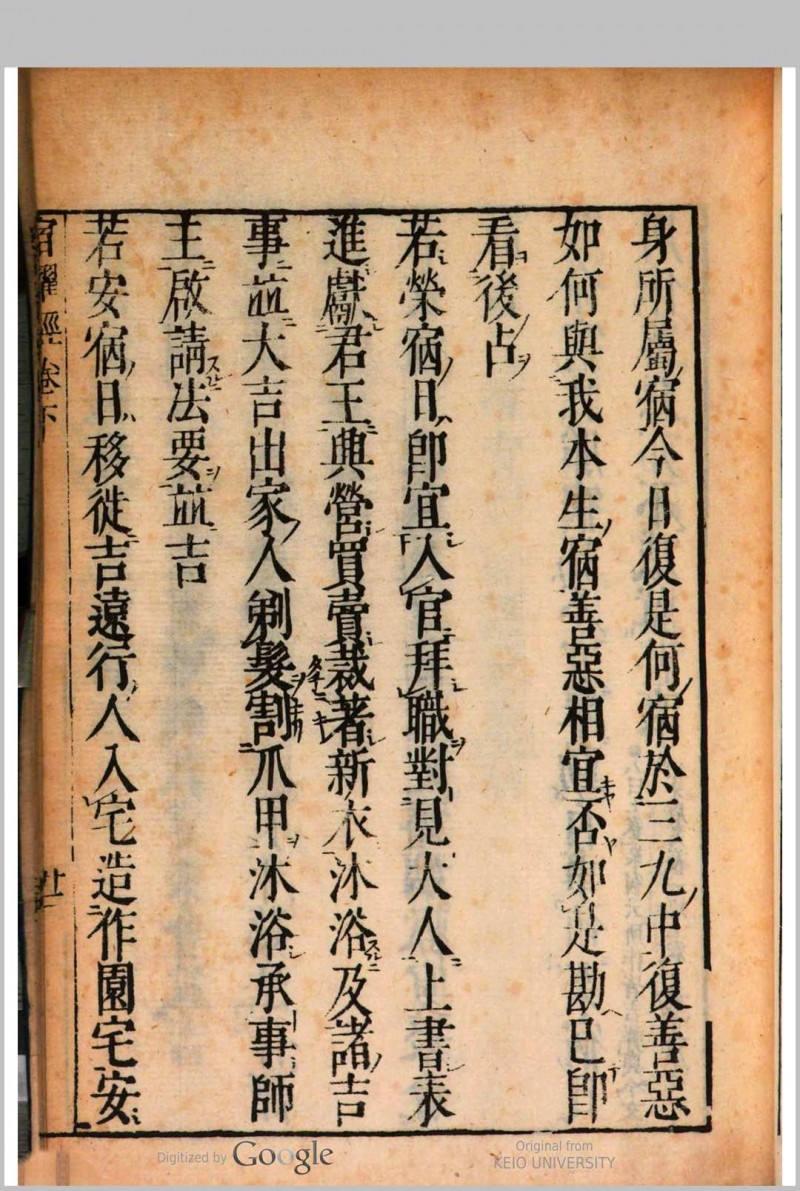 身所屬宿今日復是何宿於三九中復善惡
如何與我本生宿善惡相宜否如是勘已即
看後占
若榮宿日即宜入官拜職對見大人上書表
進獻君王興營買賣裁著新衣沐浴及諸吉
事並大吉出家人剃髮割爪甲沐浴承事師
王啟請法要並吉
若安宿日移徙吉遠行人入宅造作園宅安
宿曜經卷下
廿一
Digitized by Google
Original from
KEIO UNIVERSITY